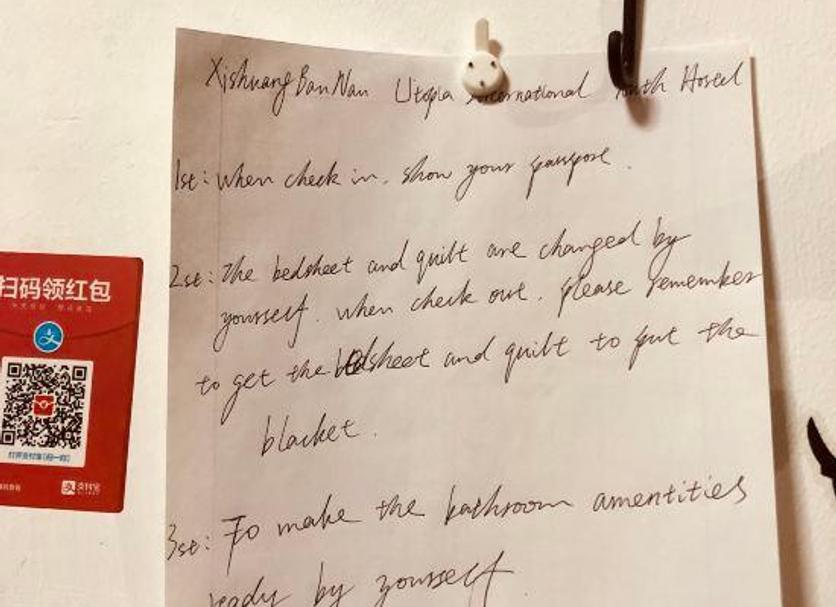 XishuangBanNan Utopia International Youth Hostel
1st: When check in. show your passport.
2st: The bedsheet and quilt are changed by
yourself. when check out. please remember
to get the bedsheet and quilt to put the
blacket.
3st: To make the bathroom amentities
ready by yourself.
扫码领红包
打开支付宝[扫一扫]
支付宝